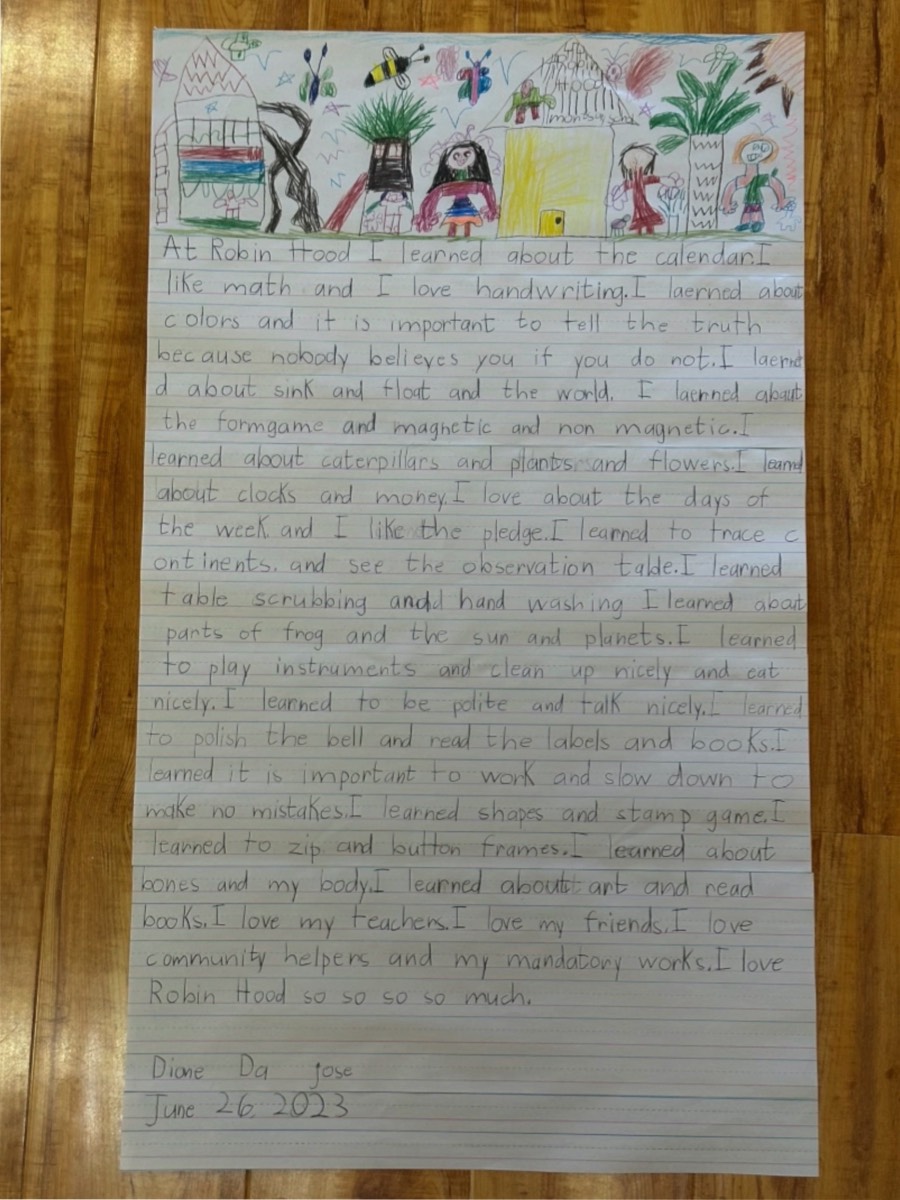 Hood
At Robin Hood I learned about the calendar.I
like math and I love handwriting.I laerned about
colors and it is important to tell the truth
because nobody believes you if you do not.I laerne
d about sink and float and the world. I laerned about
the formgame and magnetic and non magnetic.I
learned about caterpillars and plants and flowers.I learnd
about clocks and money.I love about the days of
the week and I like the pledge.I learned to trace c
ontinents. and see the observation table.I learned
table scrubbing andd hand washing I learned about
parts of frog and the sun and planets.I learned
to play instruments and clean up nicely and eat
nicely.I learned to be polite and talk nicely.I learned
to polish the bell and read the labels and books.I
learned it is important to work and slow down to
make no mistakes.I learned shapes and stamp game.I
learned to zip and button frames.I learned about
bones and my body.I learned aboutt art and read
books.I love my teachers.I love my friends.I love
community helpers and my mandatory works.I love
Robin Hood so so so so much.
Diane Da Jose
June 26, 2023